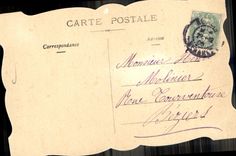 CARTE POSTALE
Correspondance
Adresse
Monsieur
Molinier
Rue Tourventouse
Béziers